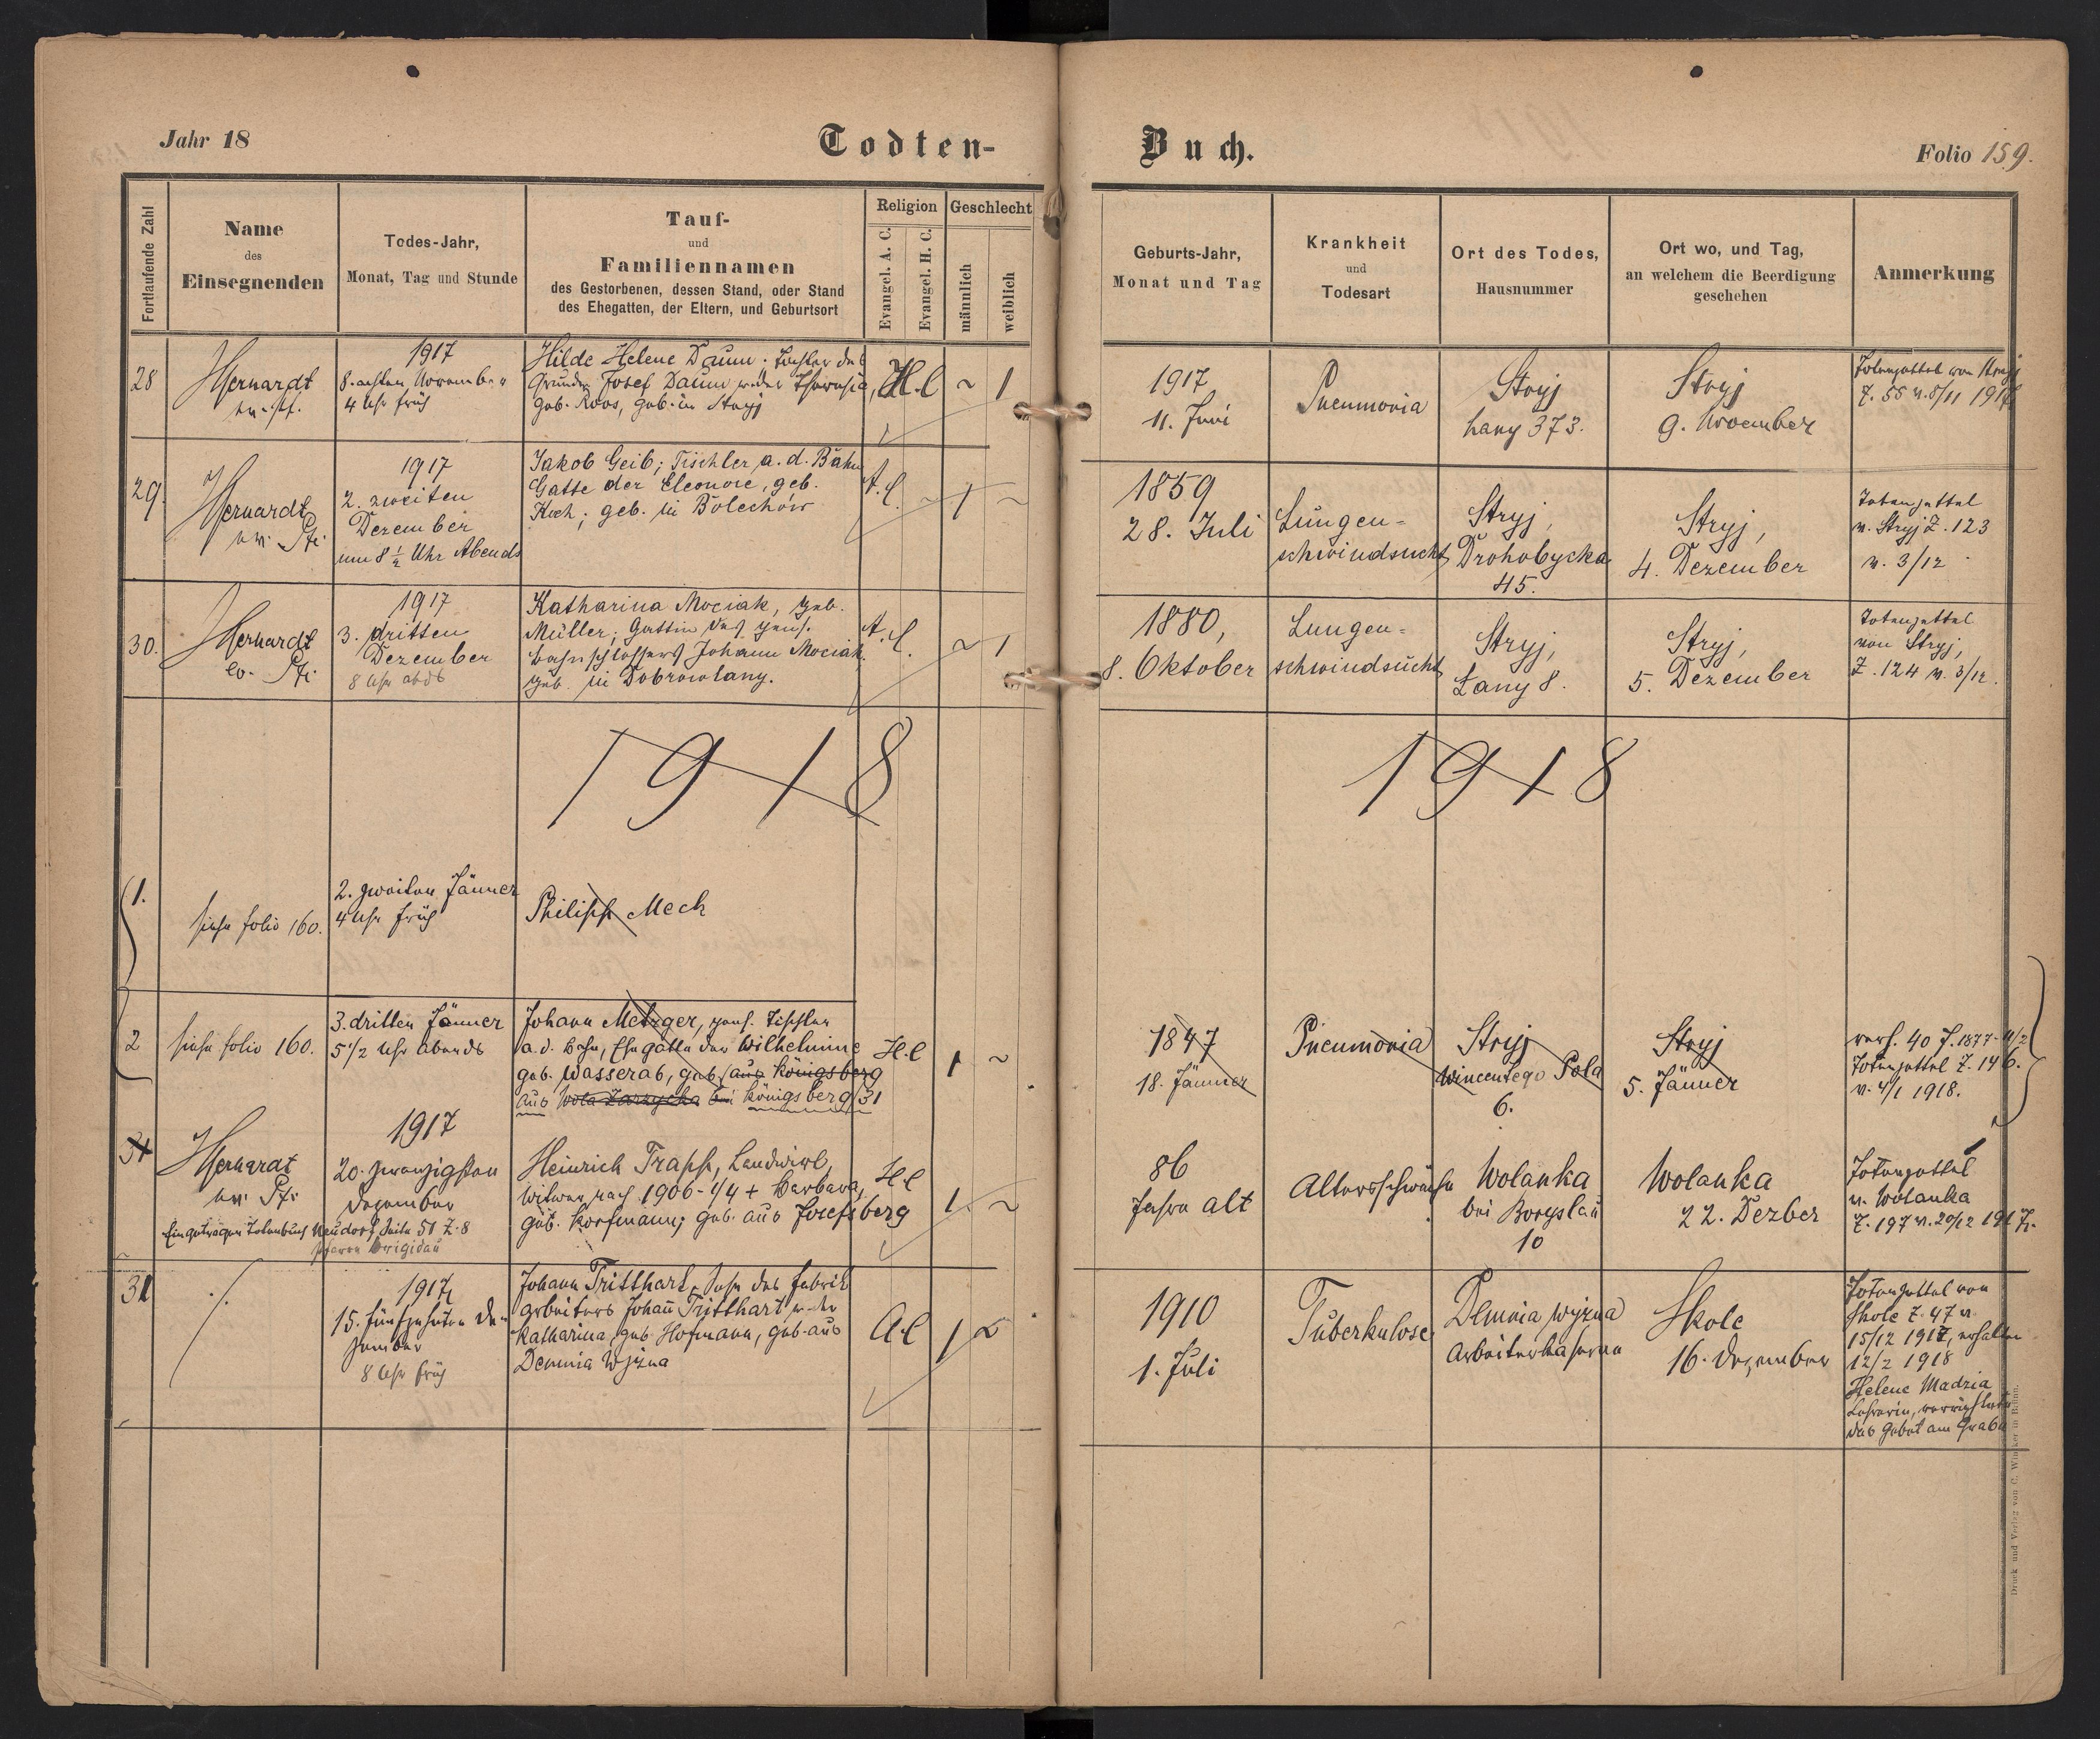 Jahr 18
Todten-
Buch.
Folio 159.
Fortlaufende Zahl
Name
des
Einsegnenden
Todes-Jahr,
Monat, Tag und Stunde
Tauf-
und
Familiennamen
des Gestorbenen, dessen Stand, oder Stand
des Ehegatten, der Eltern, und Geburtsort
Religion
Evangel. A. C.
Evangel. H. C.
Geschlecht
männlich
weiblich
Geburts-Jahr,
Monat und Tag
Krankheit
und
Todesart
Ort des Todes,
Hausnummer
Ort wo, und Tag,
an welchem die Beerdigung
geschehen
Anmerkung
28
1917
8. achten November
4 Uhr früh
Hilde Helene Daum. Tochter des
Josef Daum
geb. Roos, geb. in Stryj
H.C
~ 1
1917
11. Juni
Pneumonia
Stryj
Lany 373.
Stryj
9. November
Totenzettel von Stryj
Z. 55 v. 8/11 1917
29.
1917
2. zweiten
Dezember
um 8 1/2 Uhr Abends
Jakob Geib; Tischler a. d. Bahn
Gatte der Eleonore, geb.
Koch; geb. in Bolechów
A.C.
~ 1 ~
1859
28. Juli
Lungen=
schwindsucht
Stryj,
Drohobycka
45.
Stryj,
4. Dezember
Totenzettel
v. Stryj Z. 123
v. 3/12
30.
ev. Pfr.
1917
3. dritten
Dezember
8 Uhr abds
Katharina Mociak, geb.
Müller; Gattin des pens.
Bahnschlossers Johann Mociak.
geb. in Dobrowlany.
A.C.
~ 1
1880,
8. Oktober
Lungen=
schwindsucht
Stryj,
Łany 8.
Stryj,
5. Dezember
Totenzettel
von Stryj,
Z. 124 v. 3/12.
1918
1918
1.
siehe folio 160.
2. zweiten Jänner
4 Uhr früh
Philipp Mech
2
siehe folio 160.
3. dritten Jänner
5 1/2 Uhr abends
Johann Metzger, pens. Tischler
a. d. Bahn, Ehegatte der Wilhelmine
geb. Wasserab, geb. aus Königsberg
aus Wola Zarzycka bei Königsberg 31
H.C
1 ~
1847
18. Jänner
Pneumonia
Stryj
Wincentego Pola
6.
Stryj
5. Jänner
Totenzettel Z. 146.
v. 4/1 1918.
31
1917
20. zwanzigsten
Dezember
Heinrich Trapp, Landwirt,
Witwer nach 1906-1/4 + Barbara,
geb. Korfmann; geb. aus Josefsberg
H.C
1 ~
86
Jahre alt
Altersschwäche
Wolanka
bei Boryslau
10
Wolanka
22. Dezber
Totenzettel
v. Wolanka
Z. 197 v. 20/12 1917.
Eingetragen Totenbuch Neudorf Seite 51 Z. 8
Pfarre Brigidau
31
1917
15. fünfzehnten De-
zember
8 Uhr früh
Johann Tritthart, Sohn des Fabrik
arbeiters Johann Tritthart u. der
Katharina, geb. Hofmann, geb. aus
Demnia Wyżna
A.C
1 ~
1910
1. Juli
Tuberkulose
Demnia wyżna
Arbeiterkaserne
Skole
16. Dezember
Totenzettel von
Skole Z. 47 v.
15/12 1917, erhalten
12/2 1918
Helene Madzia
Lehrerin, verrichtete
das Gebet am Grabe
Druck und Verlag von C. Winiker in Brünn.